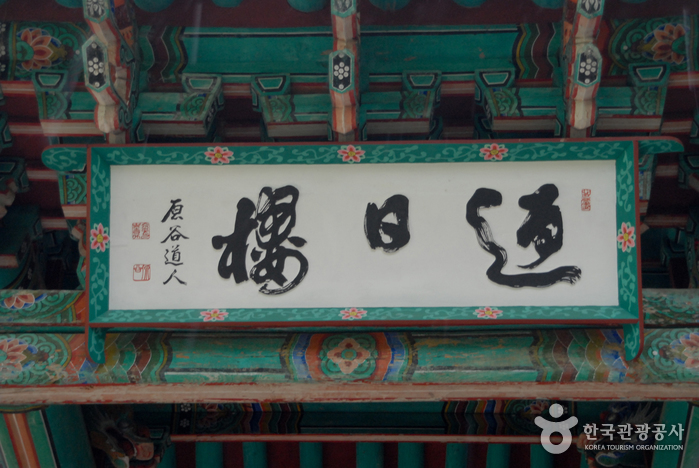 日樓
原谷道人
한국관광공사
KOREA TOURISM ORGANIZATION